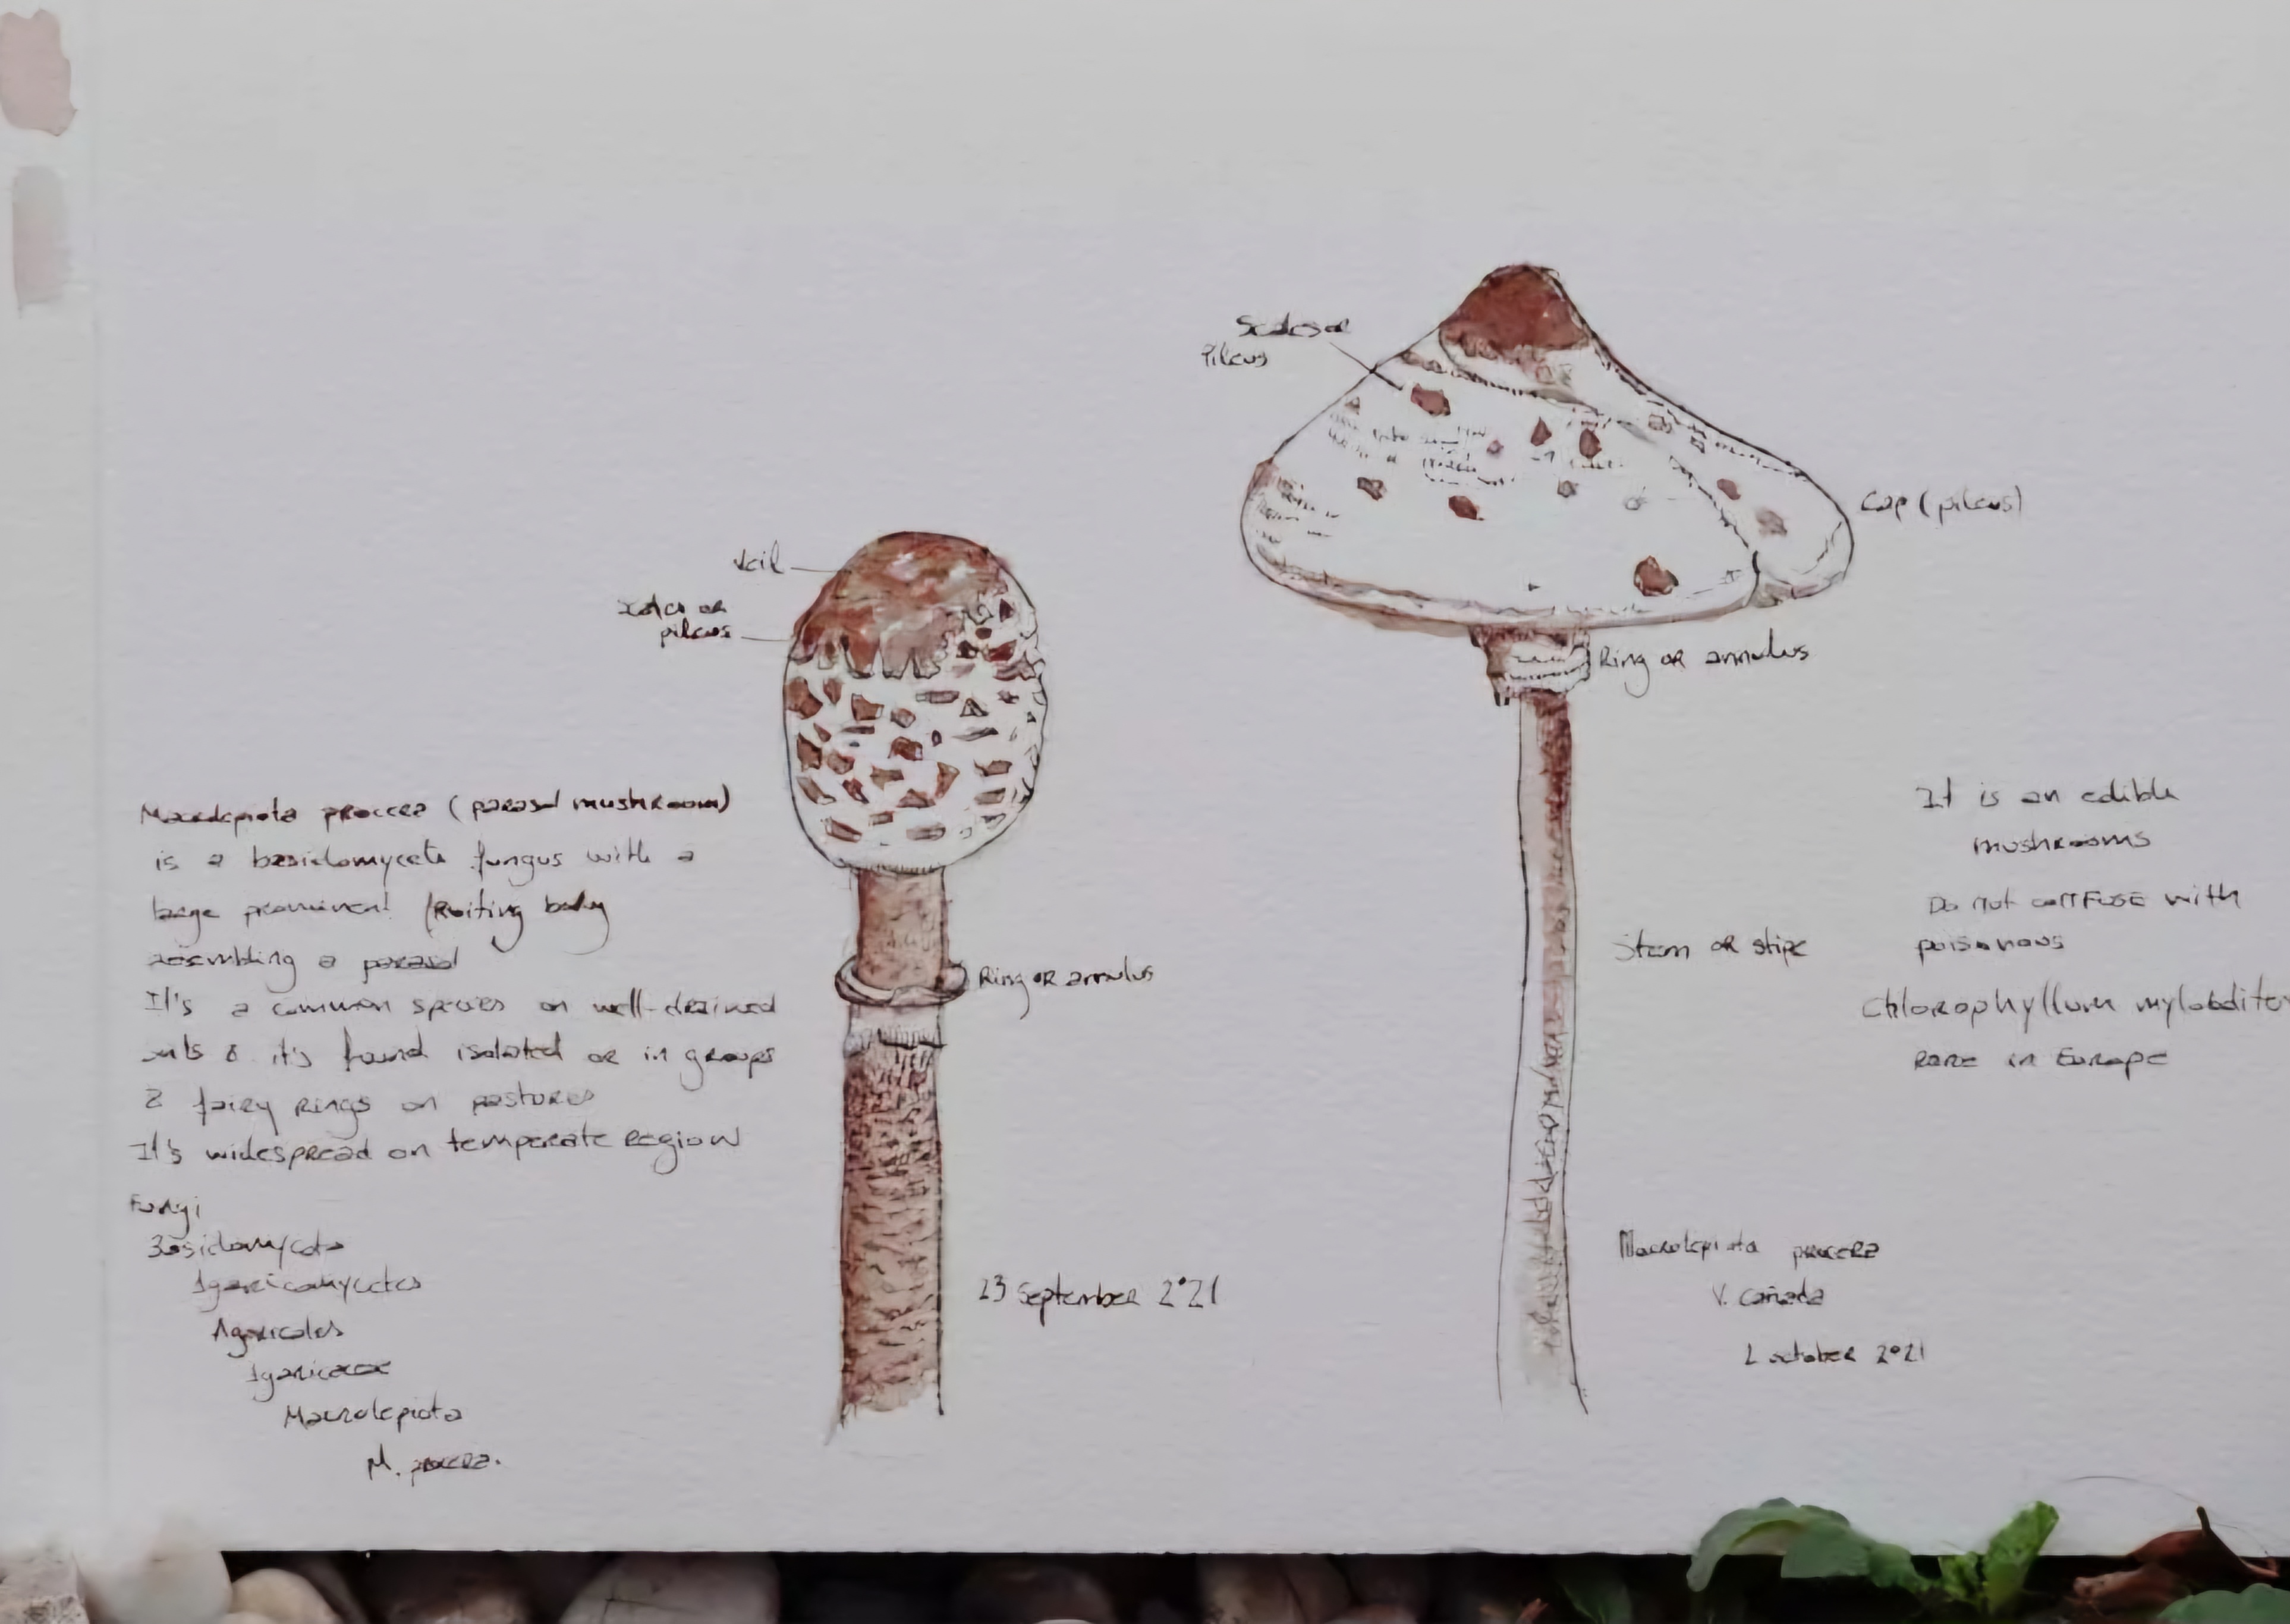 Scales or
Pileus
Cap (pileus)
Veil
Scales or
pileus
Ring or annulus
Macrolepiota procera (parasol mushroom)
is a basidiomycete fungus with a
large prominent fruiting body
resembling a parasol
It's a common species on well-drained
soils & it's found isolated or in groups
& fairy rings on pastures
It's widespread on temperate region
Fungi
Basidiomycota
Agaricomycetes
Agaricales
Agaricaceae
Macrolepiota
M. procera.
Ring or annulus
23 September 2021
Stem or stipe
It is an edible
mushrooms
Do not confuse with
poisonous
Chlorophyllum
rare in Europe
Macrolepiota procera
V. Cañada
2 october 2021